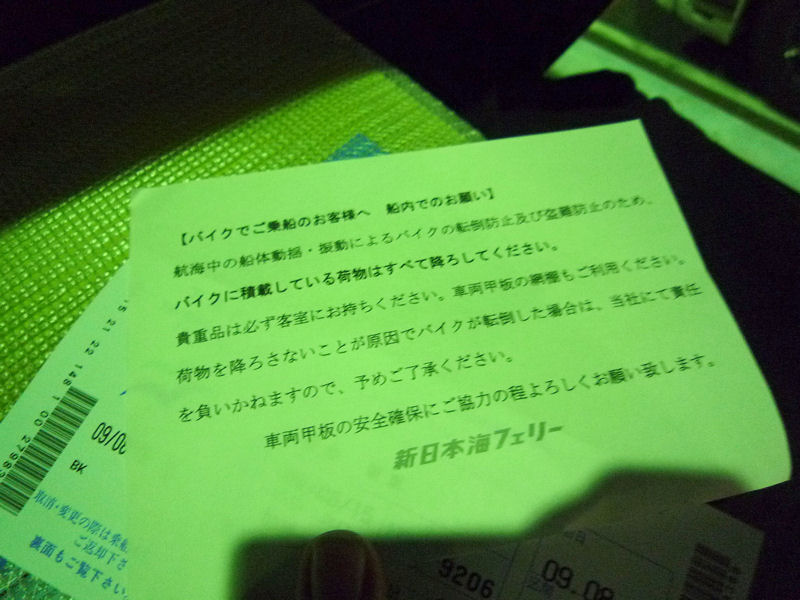 【バイクでご乗船のお客様へ　船内でのお願い】
航海中の船体動揺・振動によるバイクの転倒防止及び盗難防止のため、
バイクに積載している荷物はすべて降ろしてください。
貴重品は必ず客室にお持ちください。車両甲板の網棚もご利用ください。
荷物を降ろさないことが原因でバイクが転倒した場合は、当社にて責任
を負いかねますので、予めご了承ください。
車両甲板の安全確保にご協力の程よろしくお願い致します。
新日本海フェリー
5 21 22 148 1 00 2798
09/0
BK
取消・変更の際は乗船
ご返却下さ
裏面もご覧下さい
9206
09.08